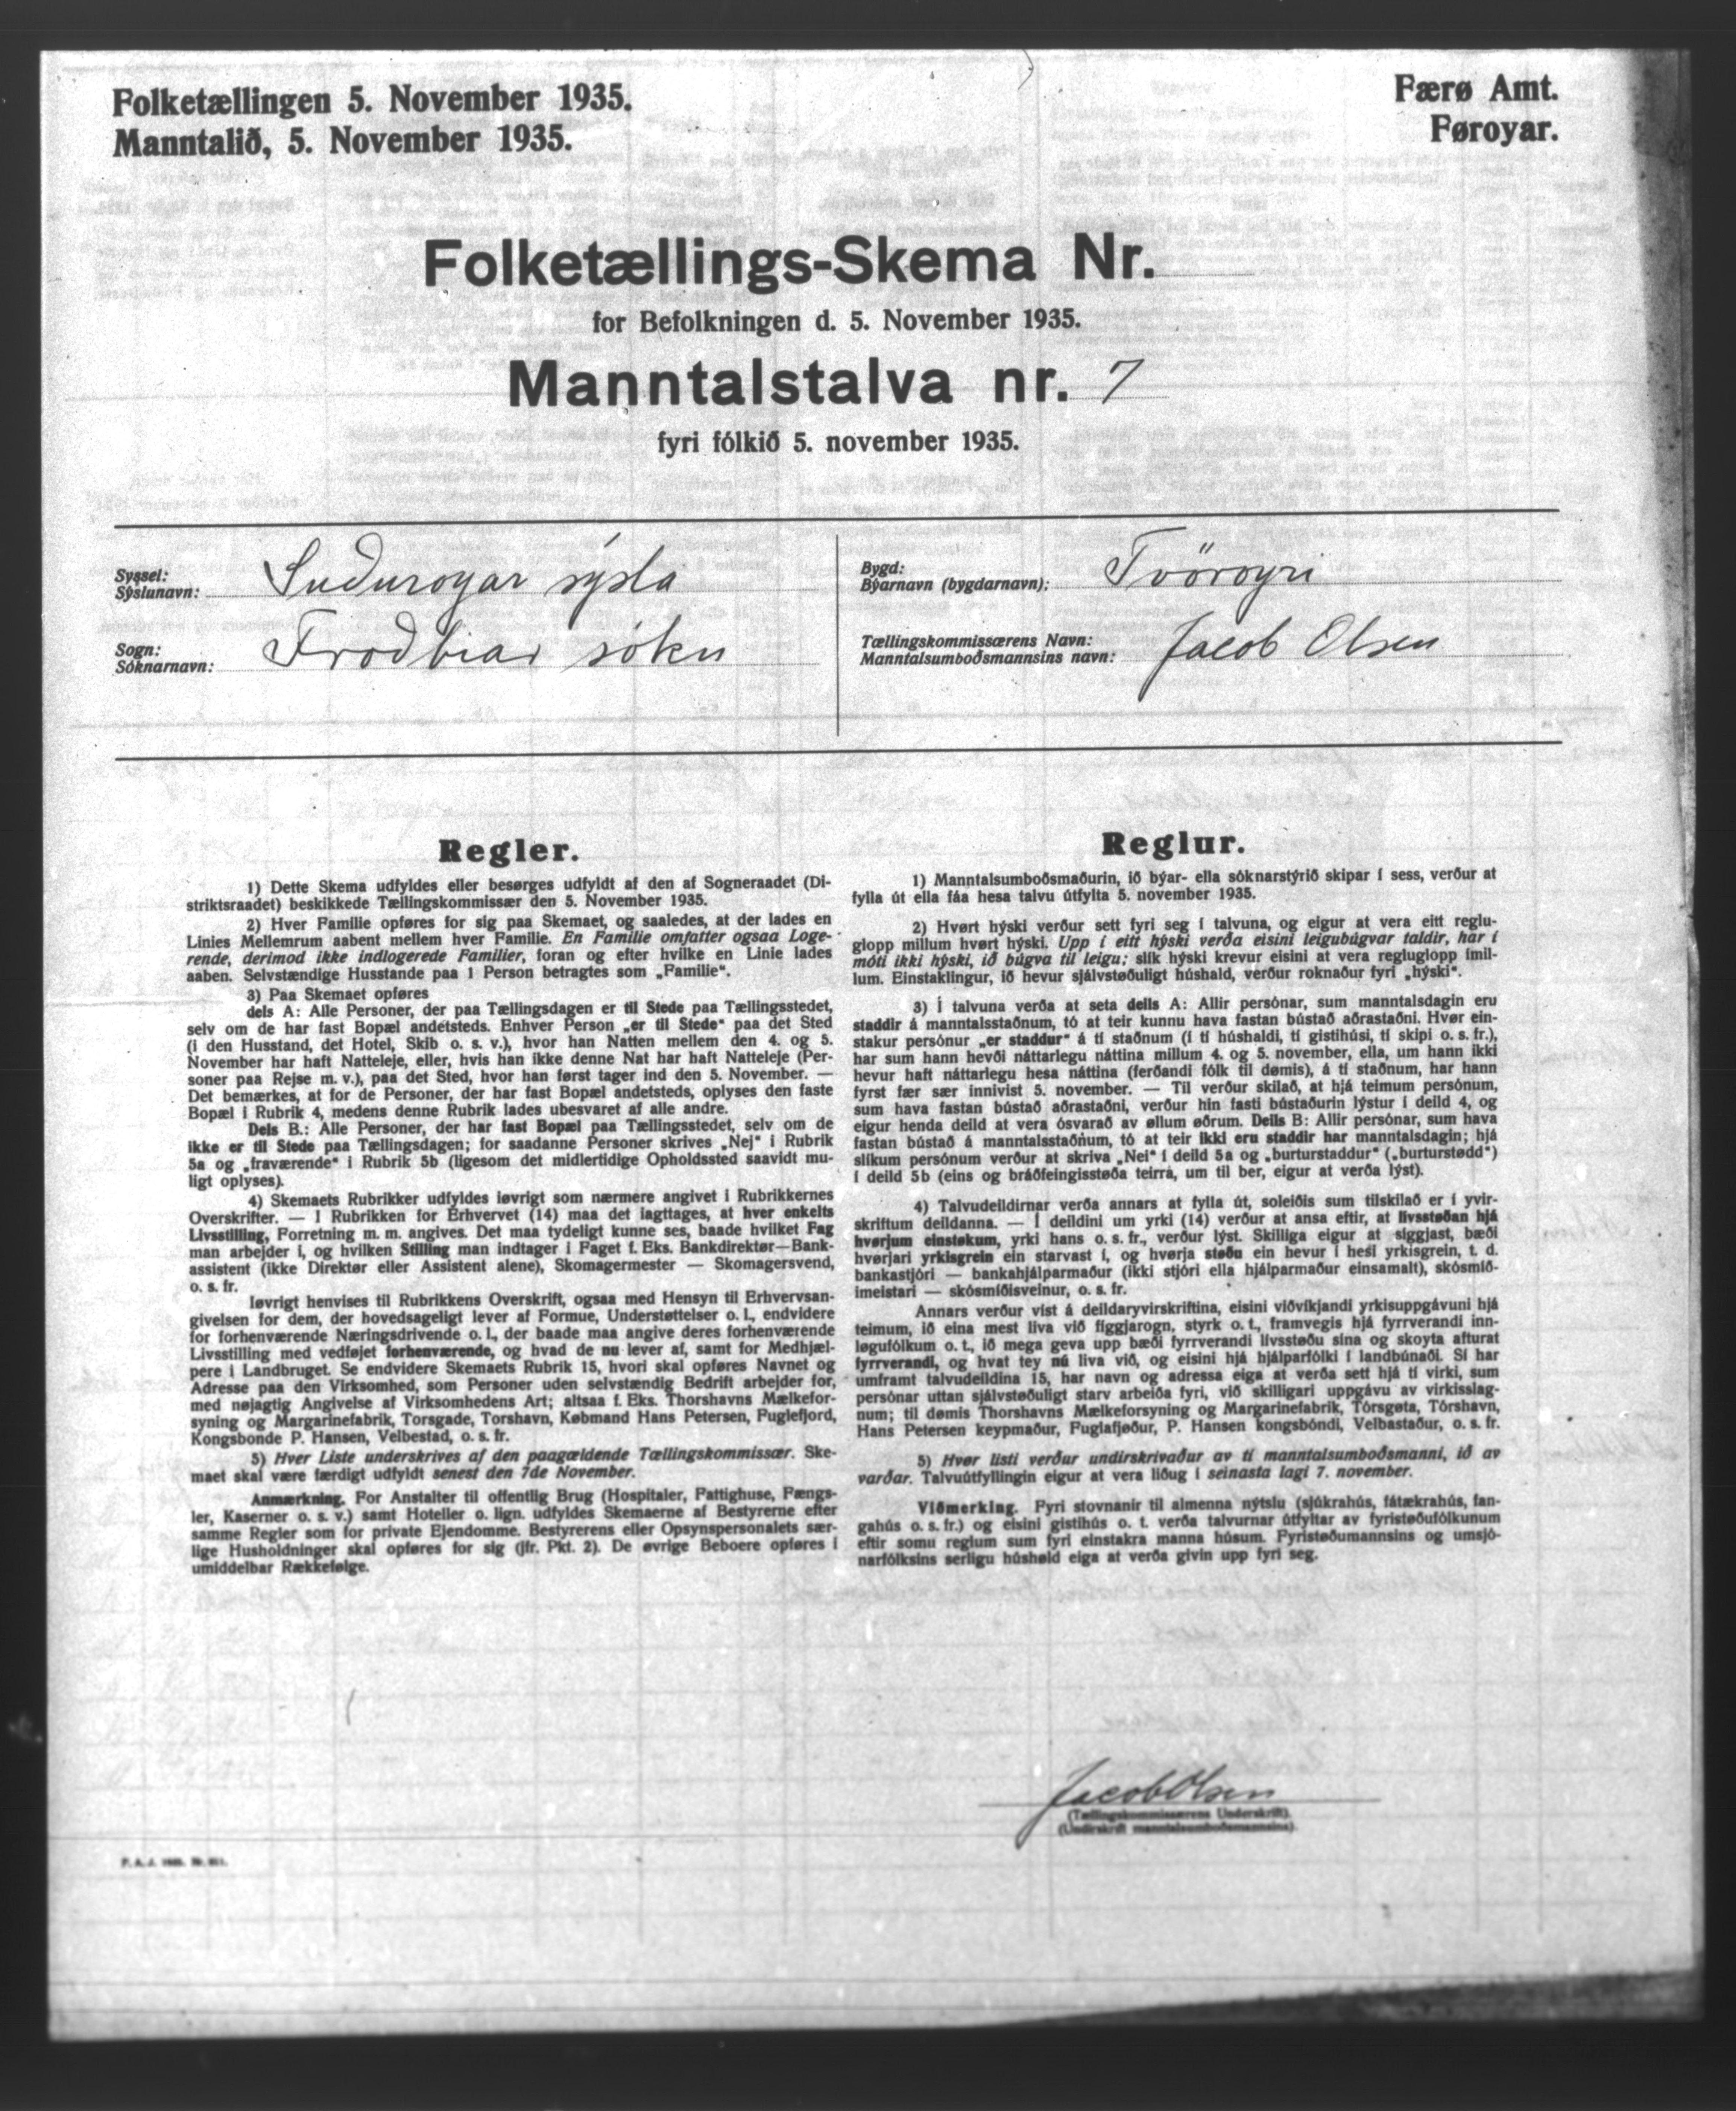 Folketællingen 5. November 1935.
Manntalið, 5. November 1935.
Færø Amt.
Føroyar.
Folketællings-Skema Nr.
for Befolkningen d. 5. November 1935.
Manntalstalva nr. 7
fyri fólkið 5. november 1935.
Syssel:
Sýslunavn: Suðuroyar sýsla
Sogn:
Sóknarnavn: Froðbiar sókn
Bygd:
Býarnavn (bygdarnavn): Tvöroyri
Tællingskommissærens Navn:
Manntalsumboðsmannsins navn: Jacob Olsen
Regler.
1) Dette Skema udfyldes eller besørges udfyldt af den af Sogneraadet (Di-
striktsraadet) beskikkede Tællingskommissær den 5. November 1935.
2) Hver Familie opføres for sig paa Skemaet, og saaledes, at der lades en
Linies Mellemrum aabent mellem hver Familie. En Familie omfatter ogsaa Loge-
rende, derimod ikke indlogerede Familier, foran og efter hvilke en Linie lades
aaben. Selvstændige Husstande paa 1 Person betragtes som „Familie“.
3) Paa Skemaet opføres
dels A: Alle Personer, der paa Tællingsdagen er til Stede paa Tællingsstedet,
selv om de har fast Bopæl andetsteds. Enhver Person „er til Stede“ paa det Sted
(i den Husstand, det Hotel, Skib o. s. v.), hvor han Natten mellem den 4. og 5.
November har haft Natteleje, eller, hvis han ikke denne Nat har haft Natteleje (Per-
soner paa Rejse m. v.), paa det Sted, hvor han først tager ind den 5. November. —
Det bemærkes, at for de Personer, der har fast Bopæl andetsteds, oplyses den faste
Bopæl i Rubrik 4, medens denne Rubrik lades ubesvaret af alle andre.
Dels B.: Alle Personer, der har fast Bopæl paa Tællingsstedet, selv om de
ikke er til Stede paa Tællingsdagen; for saadanne Personer skrives „Nej“ i Rubrik
5a og „fraværende“ i Rubrik 5b (ligesom det midlertidige Opholdssted saavidt mu-
ligt oplyses).
4) Skemaets Rubrikker udfyldes iøvrigt som nærmere angivet i Rubrikkernes
Overskrifter. — I Rubrikken for Erhvervet (14) maa det iagttages, at hver enkelts
Livsstilling, Forretning m. m. angives. Det maa tydeligt kunne ses, baade hvilket Fag
man arbejder i, og hvilken Stilling man indtager i Faget f. Eks. Bankdirektør—Bank-
assistent (ikke Direktør eller Assistent alene), Skomagermester — Skomagersvend,
o. s. fr.
Iøvrigt henvises til Rubrikkens Overskrift, ogsaa med Hensyn til Erhvervsan-
givelsen for dem, der hovedsageligt lever af Formue, Understøttelser o. l., endvidere
for forhenværende Næringsdrivende o. l., der baade maa angive deres forhenværende
Livsstilling med vedføjet forhenværende, og hvad de nu lever af, samt for Medhjæl-
pere i Landbruget. Se endvidere Skemaets Rubrik 15, hvori skal opføres Navnet og
Adresse paa den Virksomhed, som Personer uden selvstændig Bedrift arbejder for,
med nøjagtig Angivelse af Virksomhedens Art; altsaa f. Eks. Thorshavns Mælkefor-
syning og Margarinefabrik, Torsgade, Torshavn, Købmand Hans Petersen, Fuglefjord,
Kongsbonde P. Hansen, Velbestad, o. s. fr.
5) Hver Liste underskrives af den paagældende Tællingskommissær. Ske-
maet skal være færdigt udfyldt senest den 7de November.
Anmærkning. For Anstalter til offentlig Brug (Hospitaler, Fattighuse, Fængs-
ler, Kaserner o. s. v.) samt Hoteller o. lign. udfyldes Skemaerne af Bestyrerne efter
samme Regler som for private Ejendomme. Bestyrerens eller Opsynspersonalets sær-
lige Husholdninger skal opføres for sig (jfr. Pkt. 2). De øvrige Beboere opføres i
umiddelbar Rækkefølge.
Reglur.
1) Manntalsumboðsmaðurin, ið býar- ella sóknarstýrið skipar í sess, verður at
fylla út ella fáa hesa talvu útfylta 5. november 1935.
2) Hvørt hýski verður sett fyri seg í talvuna, og eigur at vera eitt reglu-
glopp millum hvørt hýski. Upp í eitt hýski verða eisini leigubúgvar taldir, har í
móti ikki hýski, ið búgva til leigu; slík hýski krevur eisini at vera regluglopp ímil-
lum. Einstaklingur, ið hevur sjálvstøðuligt húshald, verður roknaður fyri „hýski“.
3) Í talvuna verða at seta dells A: Allir persónar, sum manntalsdagin eru
staddir á manntalsstaðnum, tó at teir kunnu hava fastan bústað aðrastaðni. Hvør ein-
stakur persónur „er staddur“ á tí staðnum (í tí húshaldi, tí gistihúsi, tí skipi o. s. fr.),
har sum hann hevði náttarlegu náttina millum 4. og 5. november, ella, um hann ikki
hevur haft náttarlegu hesa náttina (ferðandi fólk til dømis), á tí staðnum, har hann
fyrst fær sær innivist 5. november. — Til verður skilað, at hjá teimum persónum,
sum hava fastan bústað aðrastaðni, verður hin fasti bústaðurin lýstur í deild 4, og
eigur henda deild at vera ósvarað av øllum øðrum. Dells B: Allir persónar, sum hava
fastan bústað á manntalsstaðnum, tó at teir ikki eru staddir har manntalsdagin; hjá
slíkum persónum verður at skriva „Nei“ í deild 5a og „burturstaddur“ („burturstødd“)
í deild 5b (eins og bráðfeingisstøða teirra, um til ber, eigur at verða lýst).
4) Talvudeildirnar verða annars at fylla út, soleiðis sum tilskilað er í yvir-
skriftum deildanna. — Í deildini um yrki (14) verður at ansa eftir, at livsstøðan hjá
hvørjum einstøkum, yrki hans o. s. fr., verður lýst. Skilliga eigur at siggjast, bæði
hvørjari yrkisgrein ein starvast í, og hvørja støðu ein hevur í hesi yrkisgrein, t. d.
bankastjóri — bankahjálparmaður (ikki stjóri ella hjálparmaður einsamalt), skósmið-
imeistari — skósmiðisveinur, o. s. fr.
Annars verður víst á deildaryvirskriftina, eisini viðvíkjandi yrkisuppgávuni hjá
teimum, ið eina mest liva við figgjarogn, styrk o. t., framvegis hjá fyrrverandi inn-
løgufólkum o. t., ið mega geva upp bæði fyrrverandi livsstøðu sína og skoyta afturat
fyrrverandi, og hvat tey nú liva við, og eisini hjá hjálparfólki í landbúnaði. Sí har
umframt talvudeildina 15, har navn og adressa eiga at verða sett hjá tí virki, sum
persónar uttan sjálvstøðuligt starv arbeiða fyri, við skilligari uppgávu av virkisslag-
num; til dømis Thorshavns Mælkeforsyning og Margarinefabrik, Tórsgøta, Tórshavn,
Hans Petersen keypmaður, Fuglafjøður, P. Hansen kongsbóndi, Velbastaður, o. s. fr.
5) Hvør listi verður undirskrivaður av tí manntalsumboðsmanni, ið av
varðar. Talvuútfyllingin eigur at vera liðug í seinasta lagi 7. november.
Viðmerking. Fyri stovnanir til almenna nýtslu (sjúkrahús, fátækrahús, fan-
gahús o. s. fr.) og eisini gistihús o. t. verða talvurnar útfyltar av fyristøðufólkunum
eftir somu reglum sum fyri einstakra manna húsum. Fyristøðumannsins og umsjó-
narfólksins serligu húshøld eiga at verða givin upp fyri seg.
Jacob Olsen
(Tællingskommissærens Underskrift).
(Undirskrift manntalsumboðsmannsins).